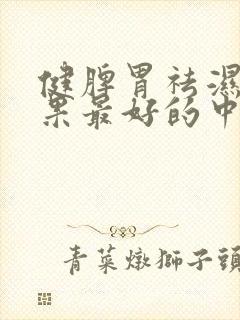 健脾胃祛濕
果最好的中
青菜燉獅子頭